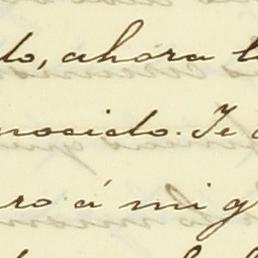 do, ahora t
nocido. Te
ro á mi g